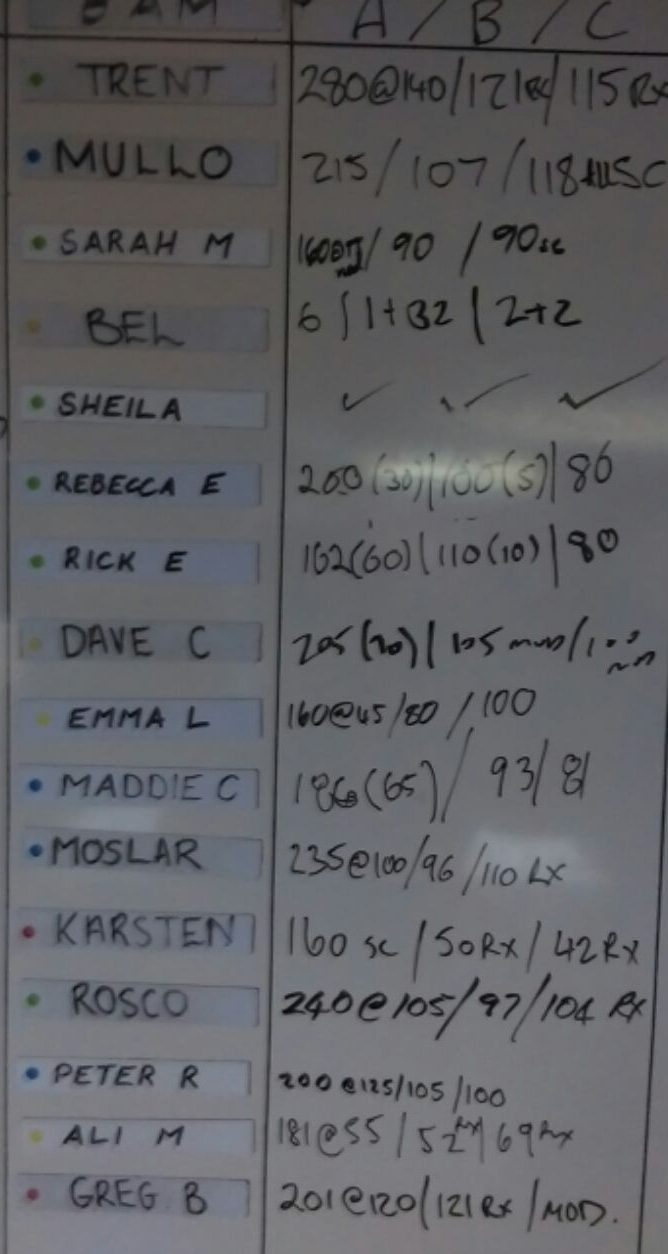 6 AM A / B / C
TRENT 280@140/121RX/115 RX
MULLO 215/107/118 SC
SARAH M / 90 / 90sc
BEL 6 | 1+32 | 2+2
SHEILA ✓ ✓ ✓
REBECCA E 200(30)|100(5)|86
RICK E 162(60)|110(10)|80
DAVE C 205(70)|105 mod/
EMMA L 160@45/80/100
MADDIE C 186(65)/ 93/81
MOSLAR 235@100/96/110 RX
KARSTEN 160 SC/50RX/42RX
ROSCO 240@105/97/104 RX
PETER R 200@125/105/100
ALI M 181@55/52RX/69RX
GREG B 201@120/121RX/MOD.